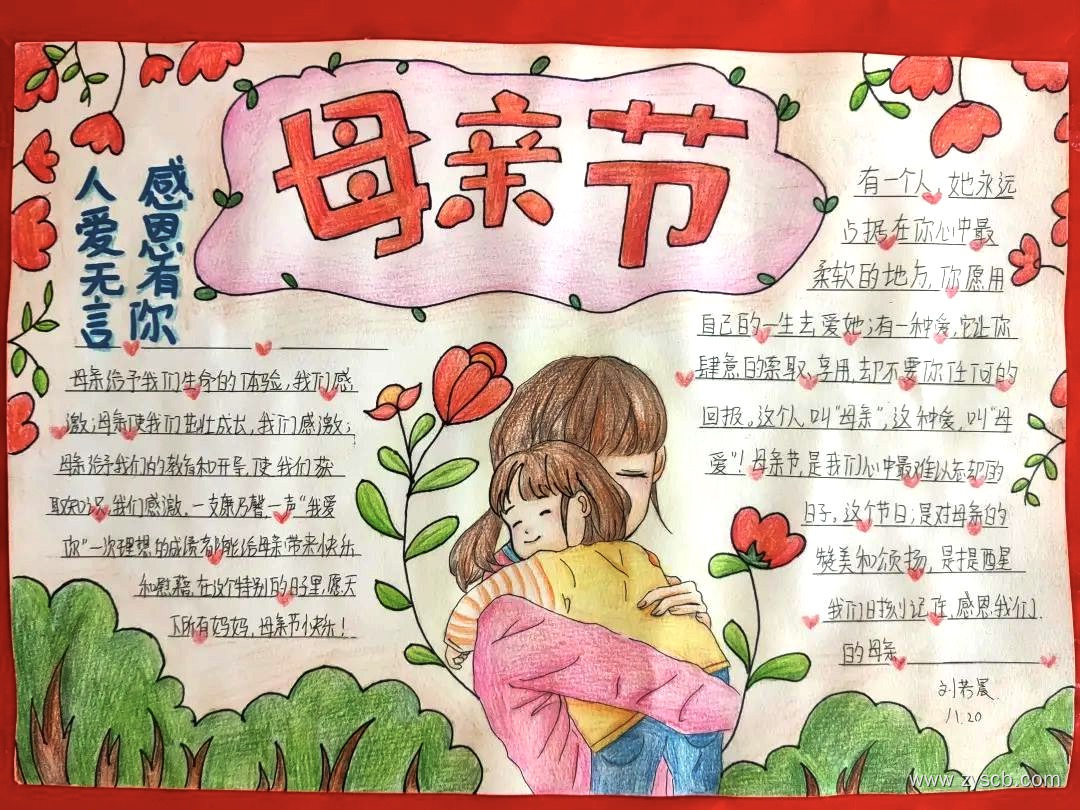 母亲节
感恩有你
人爱无言
母亲给予我们生命的体验，我们感
激；母亲使我们茁壮成长，我们感激；
母亲给予我们的教育和开导，使我们获
取知识，我们感激，一支康乃馨，一声“我爱
你”一次理想的成绩都能给母亲带来快乐
和慰藉，在这个特别的日子里，愿天
下所有妈妈，母亲节快乐！
有一个人，她永远
占据在你心中最
柔软的地方，你愿用
自己的一生去爱她；有一种爱，它让你
肆意的索取、享用，却不要你任何的
回报。这个人，叫“母亲”，这种爱，叫“母
爱”！母亲节，是我们心中最难以忘却的
日子，这个节日；是对母亲的
赞美和颂扬，是提醒
我们时刻记住，感恩我们
的母亲
刘若晨
11.20
www.zyscb.com